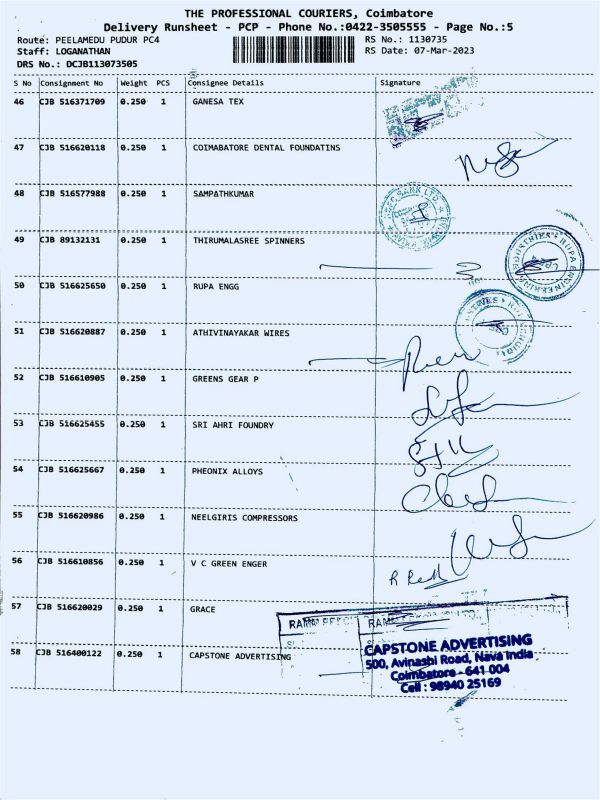 THE PROFESSIONAL COURIERS, Coimbatore
Delivery Runsheet - PCP - Phone No.:0422-3505555 - Page No.:5
Route: PEELAMEDU PUDUR PC4 RS No.: 1130735
Staff: LOGANATHAN RS Date: 07-Mar-2023
DRS No.: DCJB113073505
S No Consignment No Weight PCS Consignee Details Signature
46 CJB 516371709 0.250 1 GANESA TEX
47 CJB 516620118 0.250 1 COIMABATORE DENTAL FOUNDATINS
48 CJB 516577988 0.250 1 SAMPATHKUMAR
BANK LTD
49 CJB 89132131 0.250 1 THIRUMALASREE SPINNERS
RUPA ENGINEERING INDUSTRIES
50 CJB 516625650 0.250 1 RUPA ENGG
51 CJB 516620887 0.250 1 ATHIVINAYAKAR WIRES
52 CJB 516610905 0.250 1 GREENS GEAR P
53 CJB 516625455 0.250 1 SRI AHRI FOUNDRY
54 CJB 516625667 0.250 1 PHEONIX ALLOYS
55 CJB 516620986 0.250 1 NEELGIRIS COMPRESSORS
56 CJB 516610856 0.250 1 V C GREEN ENGER
57 CJB 516620029 0.250 1 GRACE
58 CJB 516400122 0.250 1 CAPSTONE ADVERTISING
CAPSTONE ADVERTISING
500, Avinashi Road, Nava India
Coimbatore - 641 004
Cell : 98940 25169